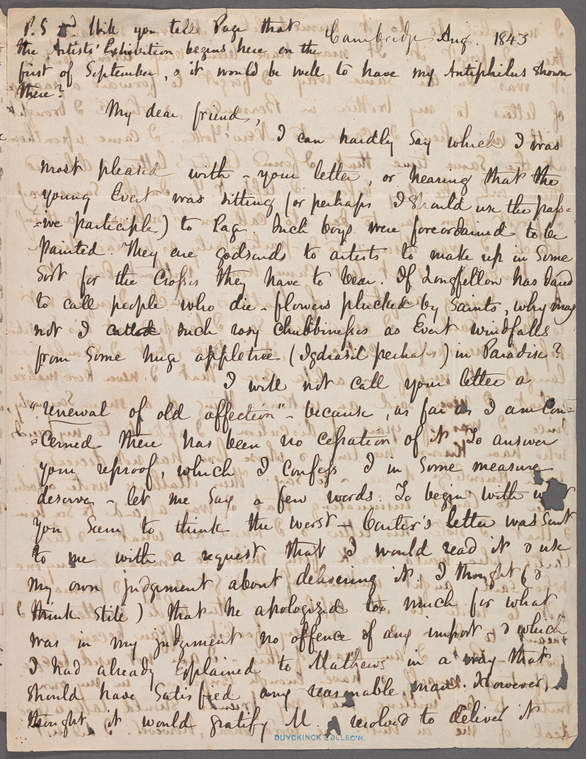 P.S. Will you tell Page that
the Artists' Exhibition begins here on the
first of September, & it would be well to have my Antiphilus shown
there?
Cambridge Aug. 1843
My dear friend,
I can hardly say which I was
most pleased with – your letter, or hearing that the
young Evert was sitting (or perhaps I should use the pas-
-ive participle) to Page. Such boys were foreordained to be
painted. They are godsends to artists to make up in some
sort for the crosses they have to bear. If Longfellow has dared
to call people who die – flowers plucked by Saints, why may
not I such rosy chubbinesses as Evert windfalls
from some huge appletree (Igdrasil perhaps) in Paradise?
I will not call your letter a
"renewal of old affection" – because, as far as I am con-
-cerned there has been no cessation of it. To answer
your reproof, which I confess I in some measure
deserve – let me say a few words. To begin with
you seem to think the worst – Carter's letter was sent
to me with a request that I would read it & use
my own judgement about delivering it. I thought (&
think still) that he apologized too much for what
was in my judgement no offence of any import, & which
I had already explained to Mathews in a way that
should have satisfied any reasonable man. However, I
thought it would gratify M. & resolved to deliver it
DUYCKINCK COLLEC'N.